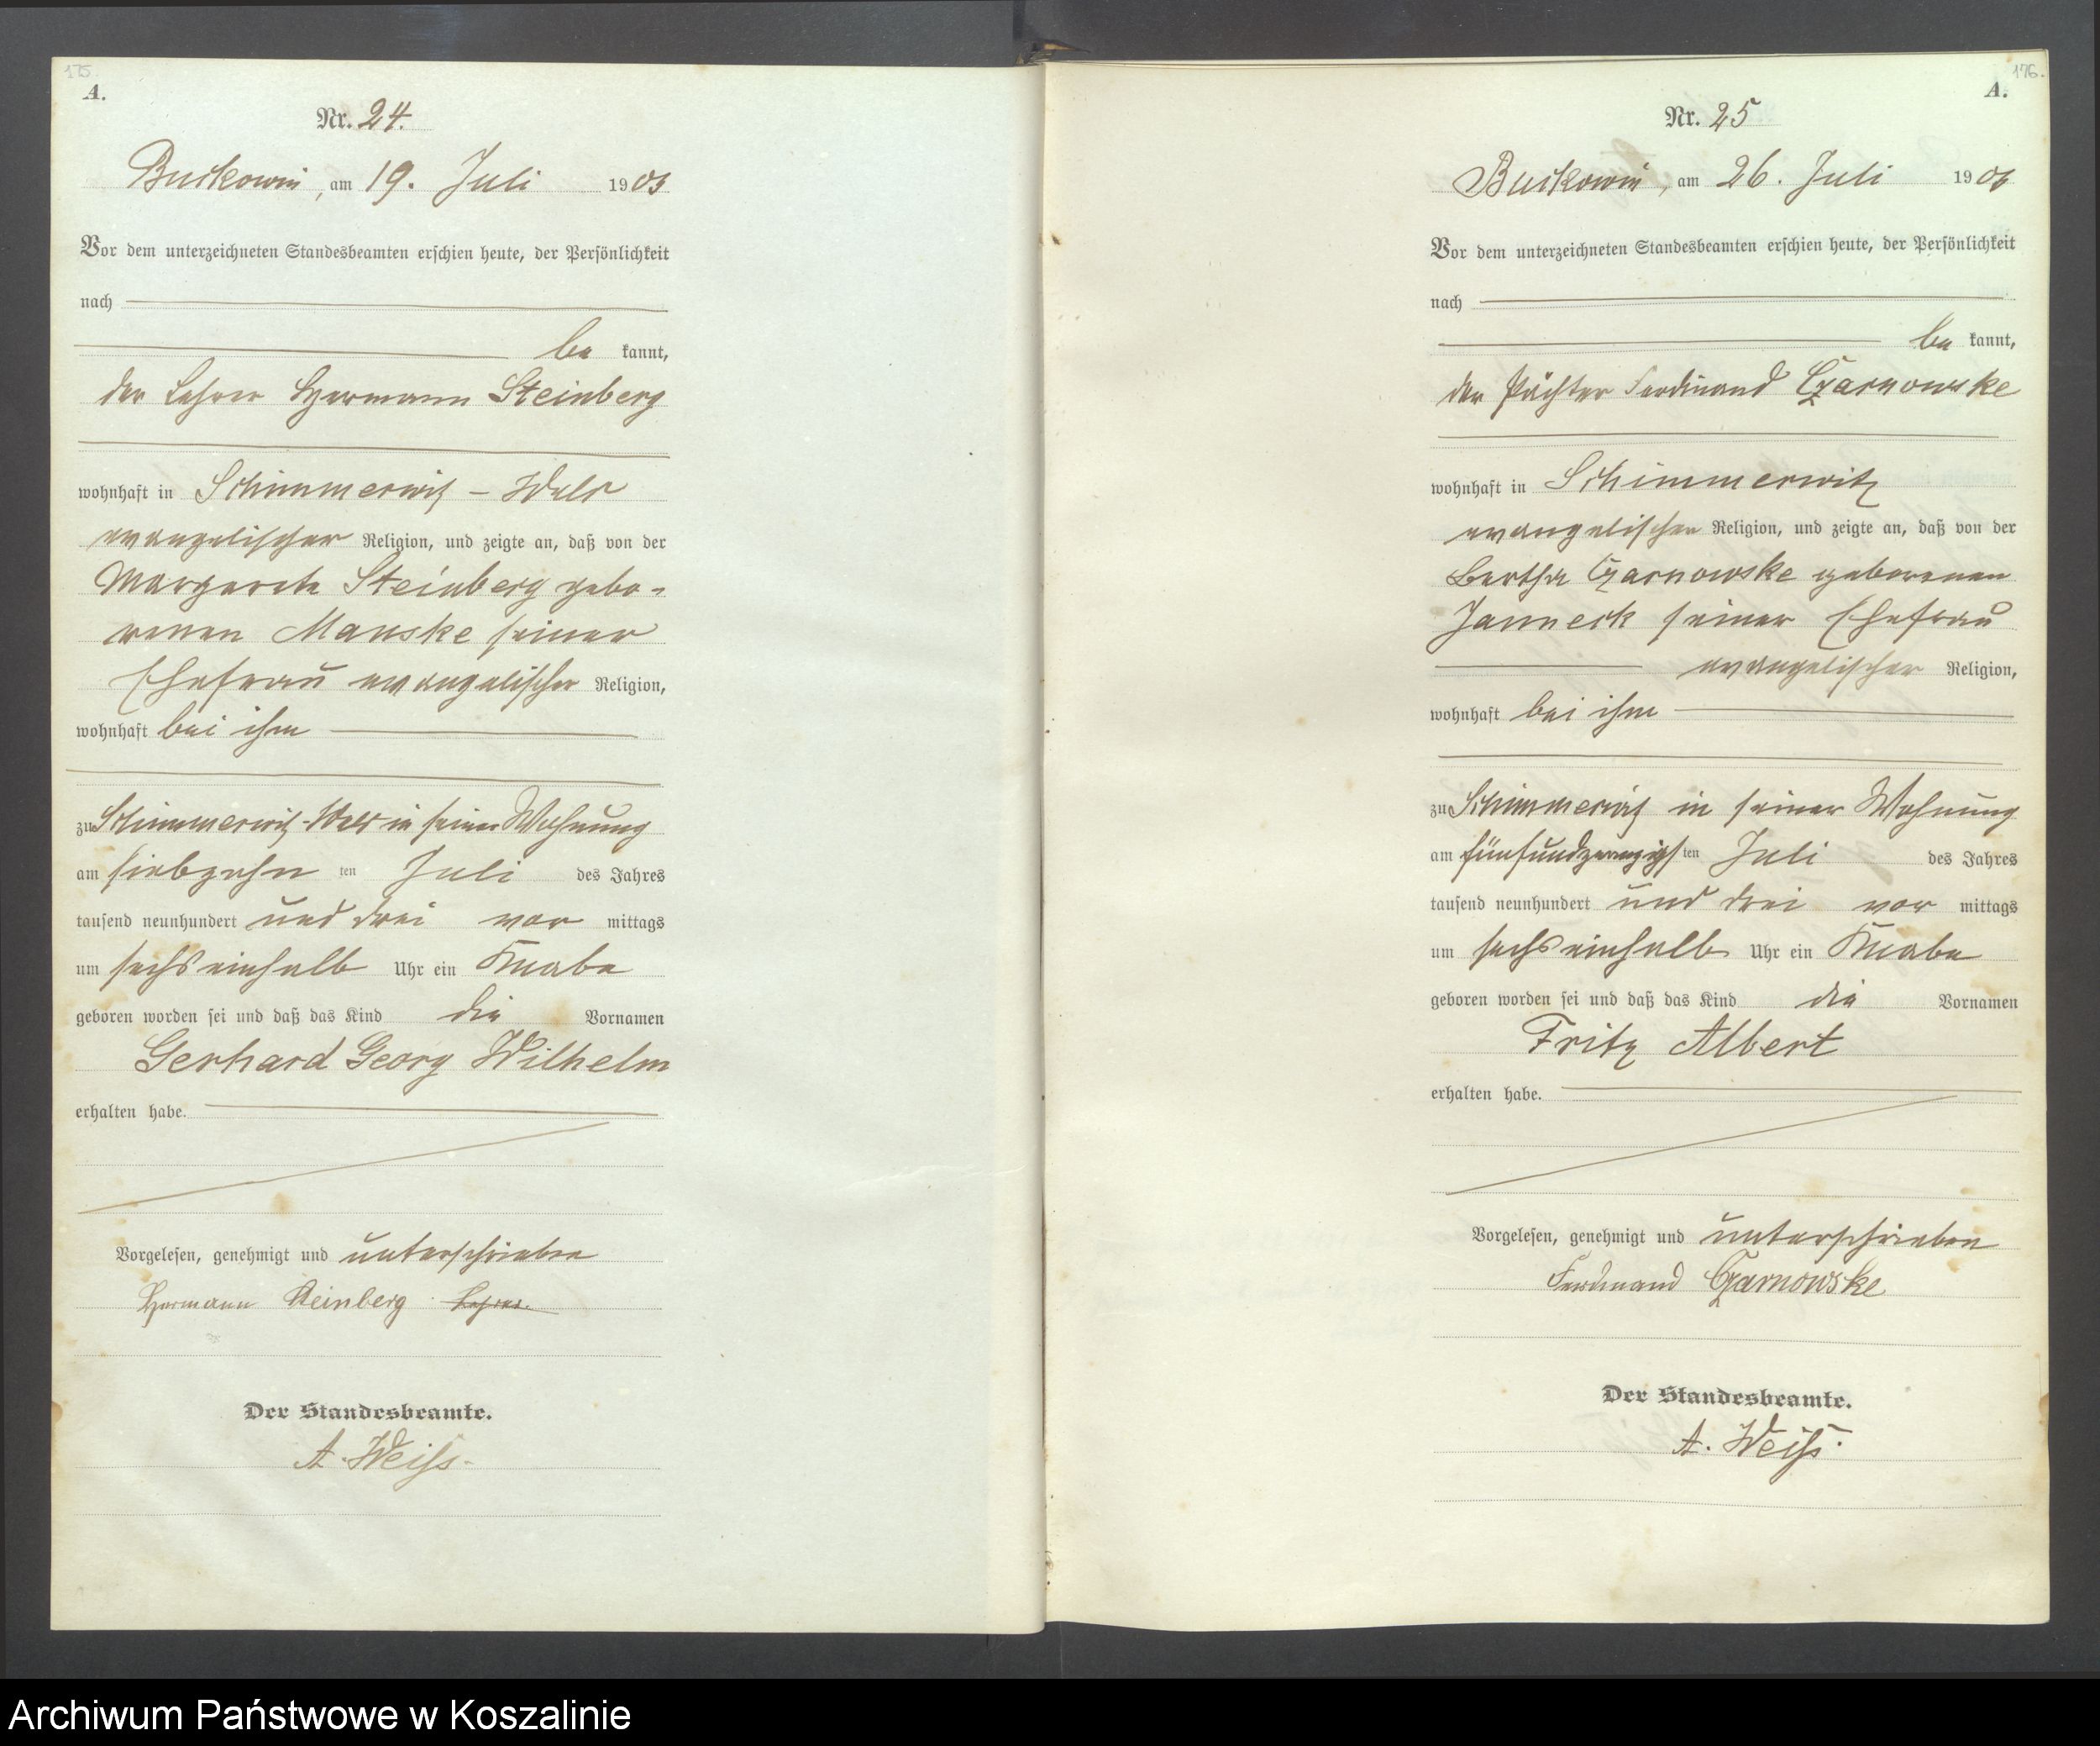 175.
A.
Nr. 24.
Buckowin, am 19. Juli 1903
Vor dem unterzeichneten Standesbeamten erschien heute, der Persönlichkeit
nach
be kannt,
der Lehrer Hermann Steinberg
wohnhaft in Schimmerwitz -
evangelischer Religion, und zeigte an, daß von der
Margarete Steinberg gebo-
renen Manske seiner
Ehefrau evangelischer Religion,
wohnhaft bei ihm
zu Schimmerwitz- in seiner Wohnung
am siebzehn ten Juli des Jahres
tausend neunhundert und drei vor mittags
um sechs einhalb Uhr ein Knabe
geboren worden sei und daß das Kind die Vornamen
Gerhard Georg Wilhelm
erhalten habe.
Vorgelesen, genehmigt und unterschrieben
Hermann Steinberg Lehrer.
Der Standesbeamte.
A. Weiss.
176.
A.
Nr. 25
Buckowin, am 26. Juli 1903
Vor dem unterzeichneten Standesbeamten erschien heute, der Persönlichkeit
nach
be kannt,
der Pächter Ferdinand Czarnowske
wohnhaft in Schimmerwitz
evangelischer Religion, und zeigte an, daß von der
Bertha Czarnowske geborenen
Janneck seiner Ehefrau
evangelischer Religion,
wohnhaft bei ihm
zu Schimmerwitz in seiner Wohnung
am fünfundzwanzigsten Juli des Jahres
tausend neunhundert und drei vor mittags
um sechs einhalb Uhr ein Knabe
geboren worden sei und daß das Kind die Vornamen
Fritz Albert
erhalten habe.
Vorgelesen, genehmigt und unterschrieben
Ferdinand Czarnowske
Der Standesbeamte.
A. Weiss.
Archiwum Państwowe w Koszalinie